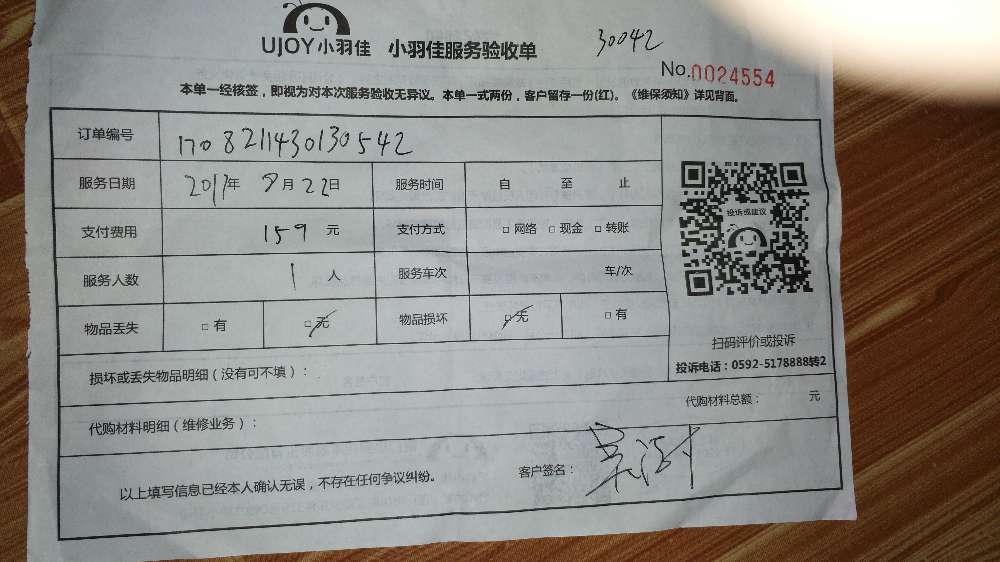 UJOY小羽佳 小羽佳服务验收单 30042
No.0024554
本单一经核签，即视为对本次服务验收无异议。本单一式两份，客户留存一份(红)。《维保须知》详见背面。
订单编号 170821143013​0542
服务日期 2017年8月22日 服务时间 自 至 止
支付费用 159 元 支付方式 □ 网络 □ 现金 □ 转账
服务人数 1 人 服务车次 车/次
物品丢失 □ 有 □ 无 物品损坏 □ 无 □ 有
投诉或建议
扫码评价或投诉
投诉电话：0592-5178888转2
损坏或丢失物品明细（没有可不填）：
代购材料明细（维修业务）： 代购材料总额： 元
以上填写信息已经本人确认无误，不存在任何争议纠纷。 客户签名：